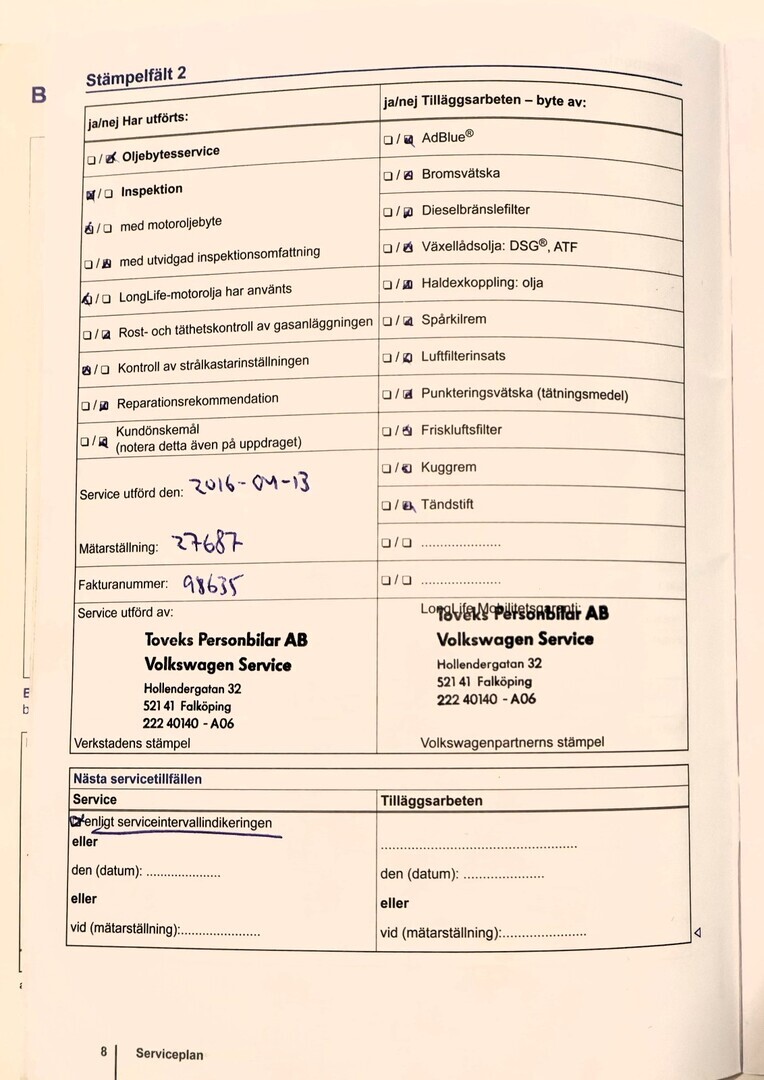 B
Stämpelfält 2
ja/nej Har utförts:
☐ / ☑ Oljebytesservice
☑ / ☐ Inspektion
☑ / ☐ med motoroljebyte
☐ / ☑ med utvidgad inspektionsomfattning
☑ / ☐ LongLife-motorolja har använts
☐ / ☑ Rost- och täthetskontroll av gasanläggningen
☑ / ☐ Kontroll av strålkastarinställningen
☐ / ☑ Reparationsrekommendation
☐ / ☑ Kundönskemål
(notera detta även på uppdraget)
Service utförd den: 2016-04-13
Mätarställning: 27687
Fakturanummer: 98635
Service utförd av:
Toveks Personbilar AB
Volkswagen Service
Hollendergatan 32
521 41 Falköping
222 40140 - A06
Verkstadens stämpel
ja/nej Tilläggsarbeten – byte av:
☐ / ☑ AdBlue®
☐ / ☑ Bromsvätska
☐ / ☑ Dieselbränslefilter
☐ / ☑ Växellådsolja: DSG®, ATF
☐ / ☑ Haldexkoppling: olja
☐ / ☑ Spårkilrem
☐ / ☑ Luftfilterinsats
☐ / ☑ Punkteringsvätska (tätningsmedel)
☐ / ☑ Friskluftsfilter
☐ / ☑ Kuggrem
☐ / ☑ Tändstift
☐ / ☐ ......................
☐ / ☐ ......................
LongLife Mobilitetsgaranti:
Toveks Personbilar AB
Volkswagen Service
Hollendergatan 32
521 41 Falköping
222 40140 - A06
Volkswagenpartnerns stämpel
Nästa servicetillfällen
Service
☑ enligt serviceintervallindikeringen
eller
den (datum): ....................
eller
vid (mätarställning):......................
Tilläggsarbeten
......................................................
den (datum): ......................
eller
vid (mätarställning):.......................
8 Serviceplan